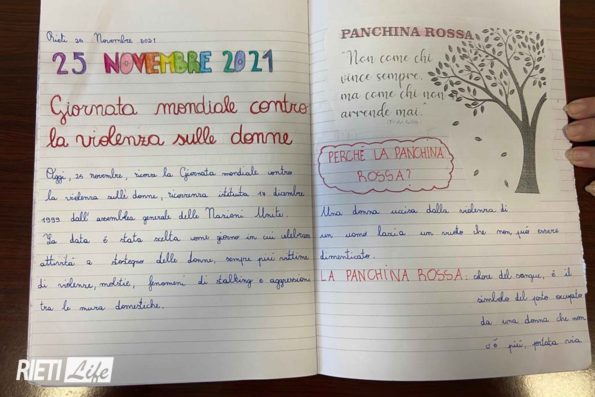 Rieti 25 Novembre 2021
25 NOVEMBRE 2021
Giornata mondiale contro
la violenza sulle donne
Oggi, 25 novembre, ricorre la Giornata mondiale contro
la violenza sulle donne, ricorrenza istituita 17 dicembre
1999 dall'assemblea generale delle Nazioni Unite.
La data è stata scelta come giorno in cui celebrare
attività a sostegno delle donne, sempre più vittime
di violenze, molestie, fenomeni di stalking e aggressioni
tra le mura domestiche.
PANCHINA ROSSA
"Non come chi
vince sempre,
ma come chi non
arrende mai."
PERCHÉ LA PANCHINA
ROSSA?
Una donna uccisa dalla violenza di
un uomo lascia un vuoto che non può essere
dimenticato.
LA PANCHINA ROSSA: colore del sangue, è il
simbolo del posto occupato
da una donna che non
c'è più, portata via
RIETI Life